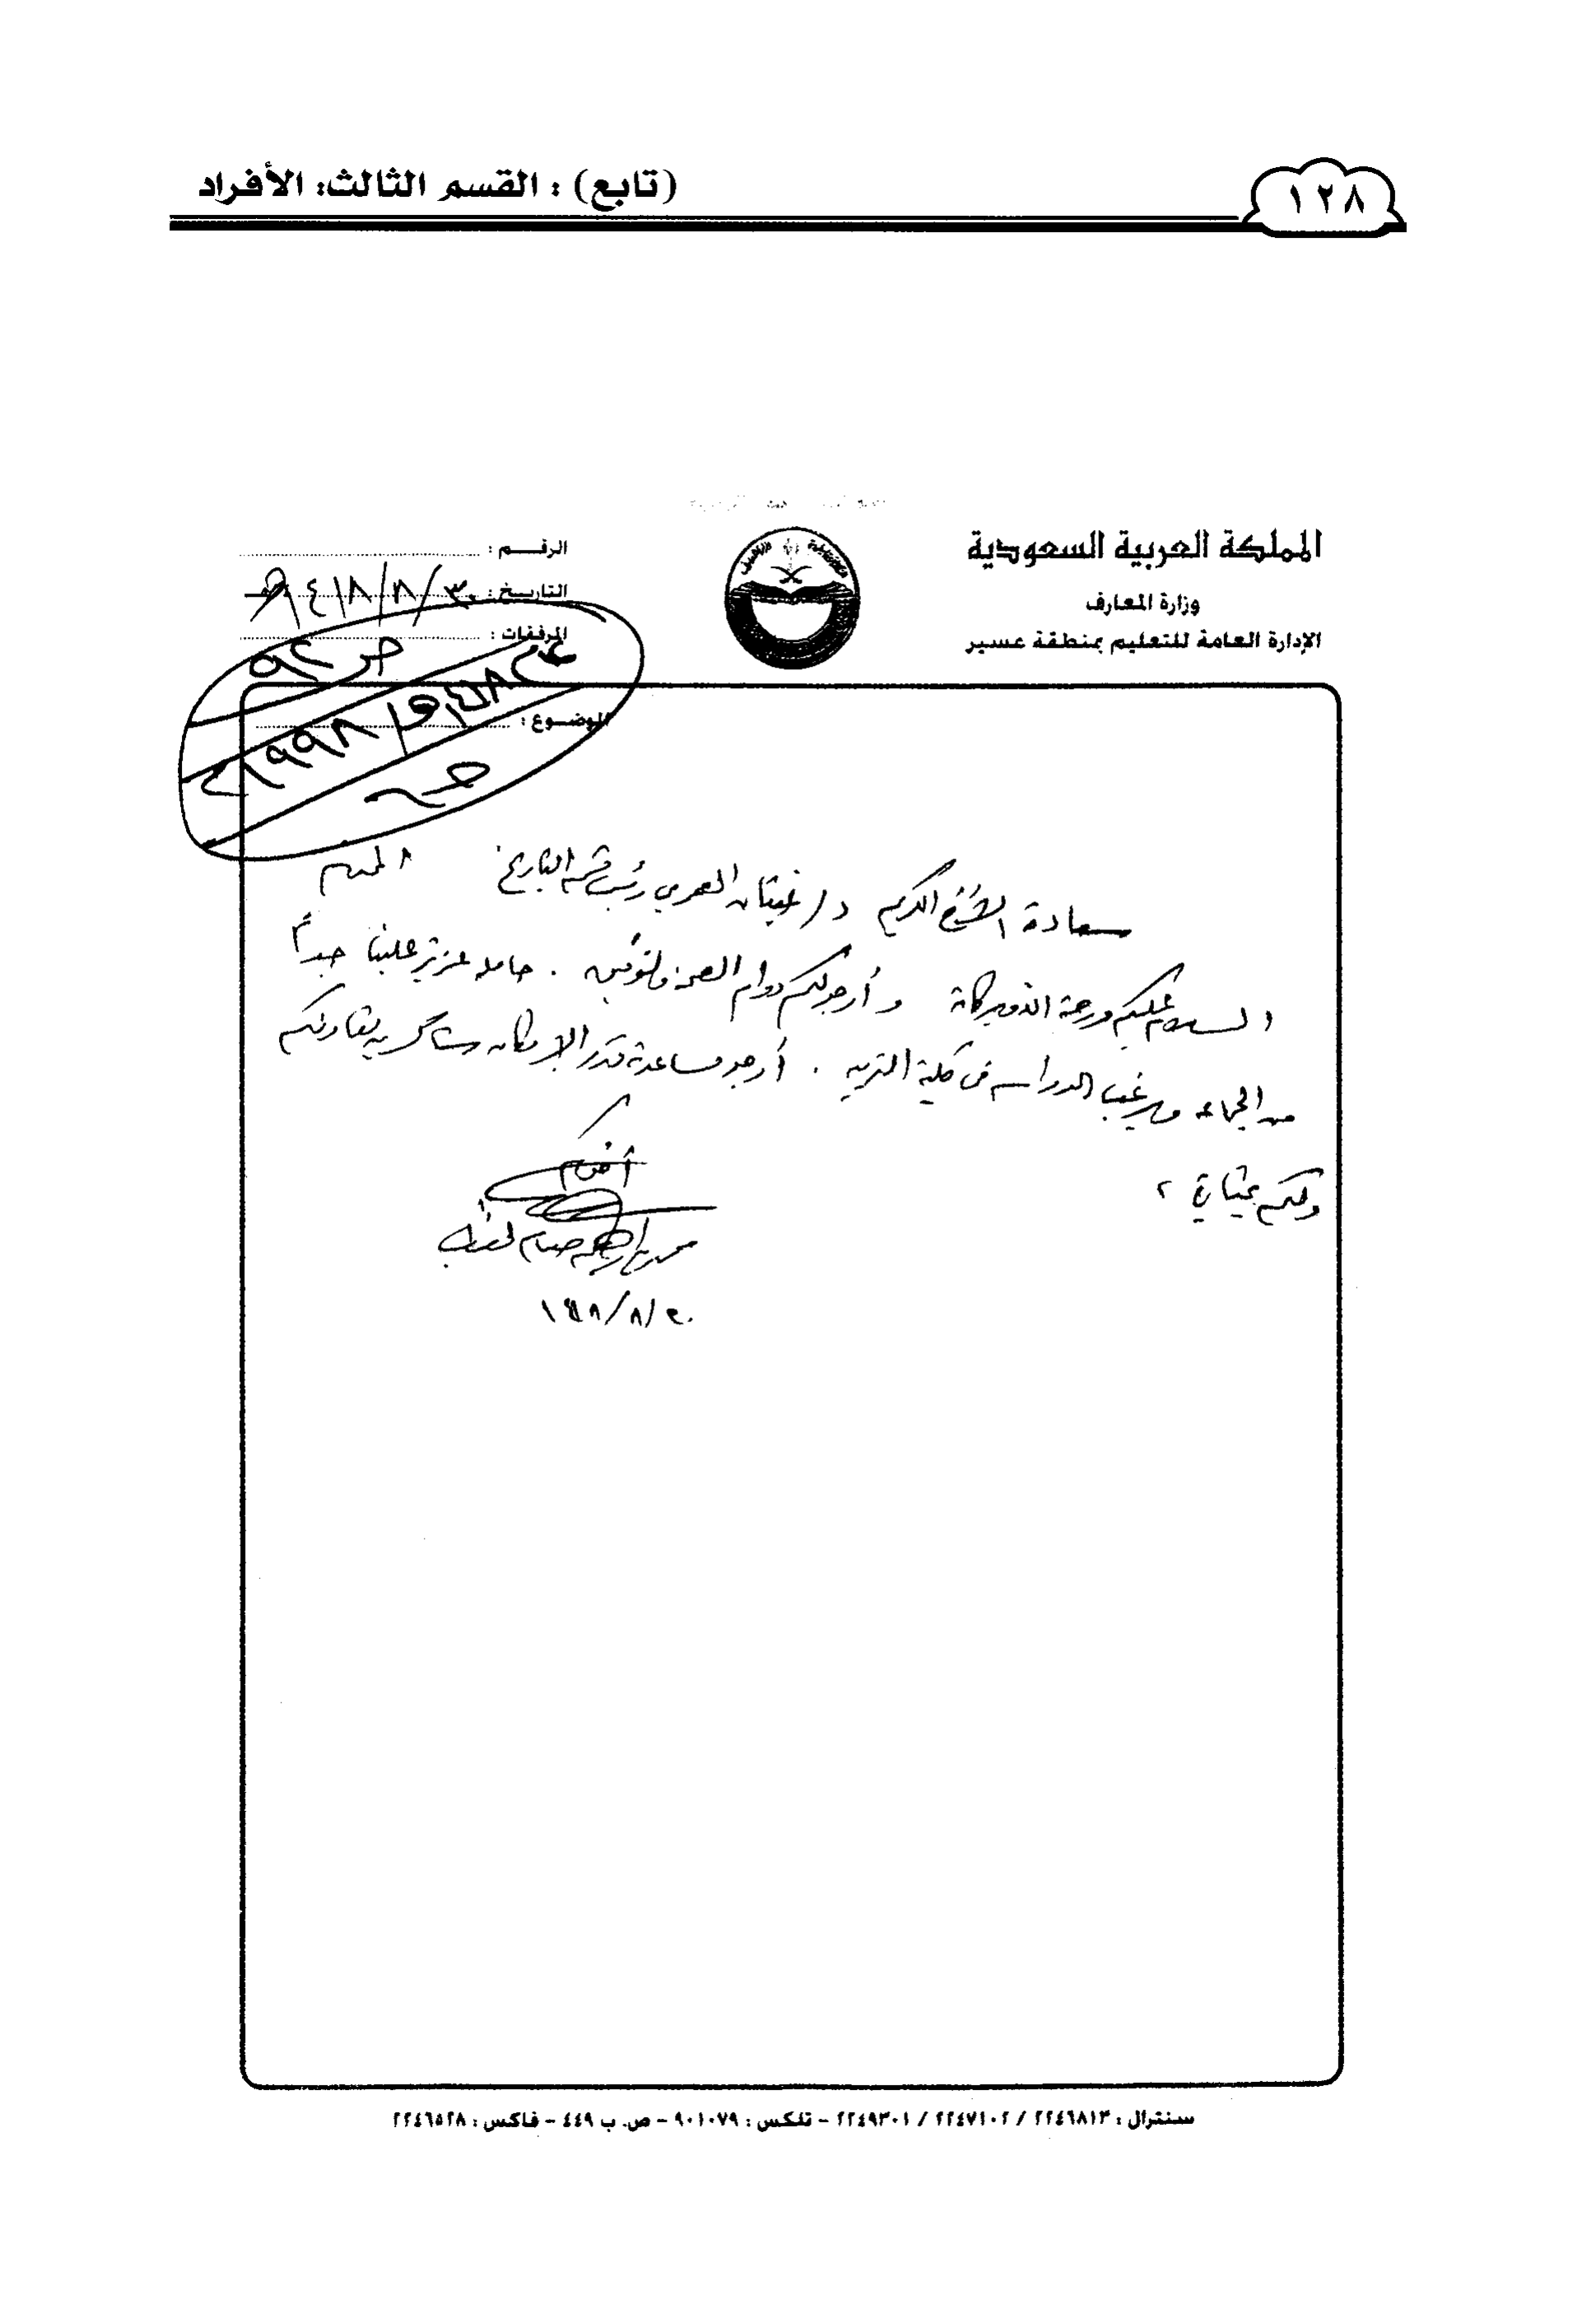 (تابع) : القسم الثالث: الأفراد
١٢٨
المملكة العربية السعودية
وزارة المعارف
الإدارة العامة للتعليم بمنطقة عسير
الرقــم :
التاريخ : ٣٠/٨/١٤١٨هـ
المرفقات :
الموضوع :
ص ٩٢
عام ١٤١٨هـ / ١٩٩٨م
سعادة الأخ الكريم د/ غيثان العمري رئيس قسم التاريخ المحترم
السلام عليكم ورحمة الله وبركاته وأرجو لكم دوام الصحة والتوفيق . حامله عزيز علينا جداً
من الجماعة ويرغب الدراسة في كلية التربية . أرجو مساعدته قدر الإمكان شاكرين تعاونكم
ولكم تحياتي ،
أخوكم
محمد
٣٠/٨/١٤١٨
سنترال : ٢٢٤٦٨١٣ / ٢٢٤٧١٠٢ / ٢٢٤٩٣٠١ – تلكس : ٩٠١٠٧٩ – ص. ب ٤٤٩ – فاكس : ٢٢٤٦٥٢٨